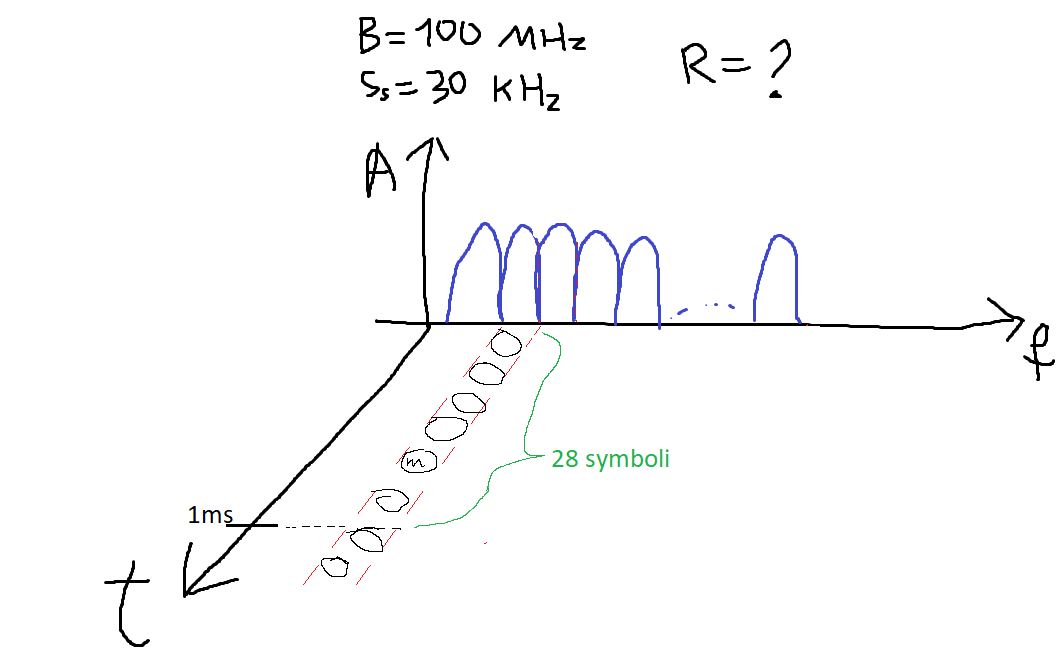 B=100 MHz
Ss=30 KHz
R=?
A
f
m
28 symboli
1ms
t